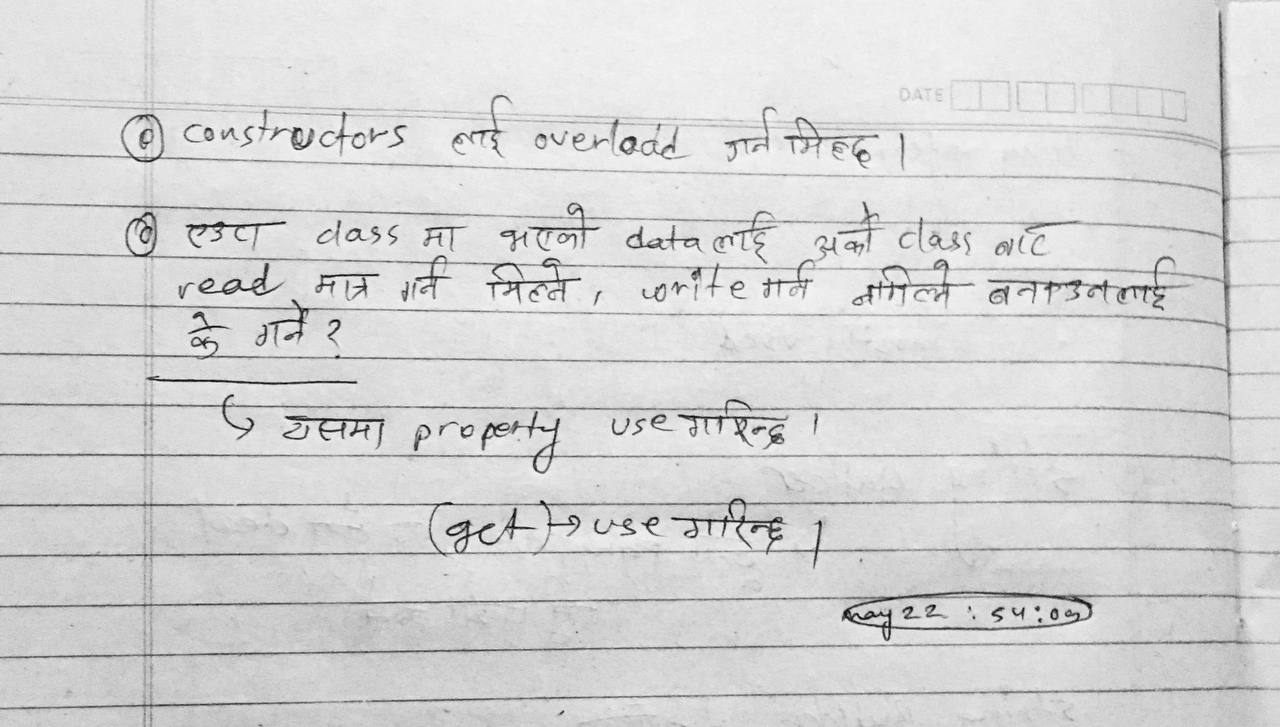 DATE
constructors लाई overload गर्न मिल्छ ।
एउटा class मा भएको data लाई अर्को class बाट
read मात्र गर्न मिल्ने, write गर्न नमिल्ने बनाउनलाई
के गर्ने ?
यसमा property use गरिन्छ ।
(get) → use गरिन्छ ।
may 22 : 54:09